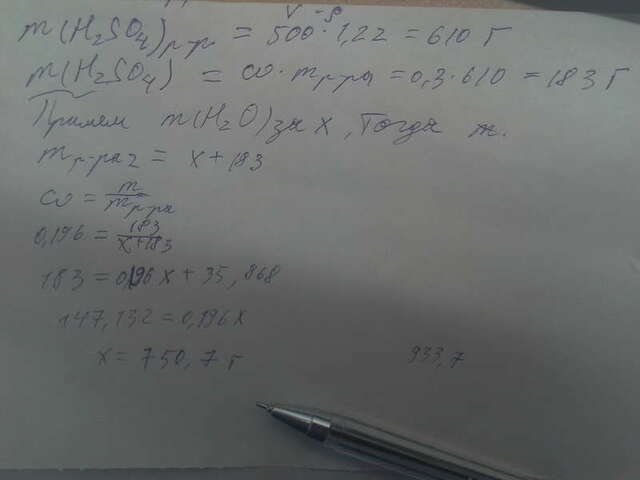 V · ρ
m(H₂SO₄)р-р = 500 · 1,22 = 610 г
m(H₂SO₄) = ω · mр-ра = 0,3 · 610 = 183 г
Примем m(H₂O) за x, Тогда m.
mр-ра 2 = x + 183
ω = m / mр-ра
0,196 = 183 / x+183
183 = 0,196x + 35,868
147,132 = 0,196x
x = 750,7 г 933,7